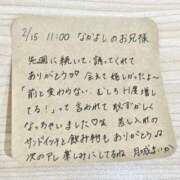 2/15 11:00 なかよしのお兄様
先週に続いて、誘ってくれて
ありがとう
会えて嬉しかったよ〜
「前と変わらない、むしろH度増し
てる!」って言われて恥ずかしく
なっちゃいました♡笑 差し入れの
サンドイッチと飲み物もありがとう♪
次のアレ楽しみにしてるね